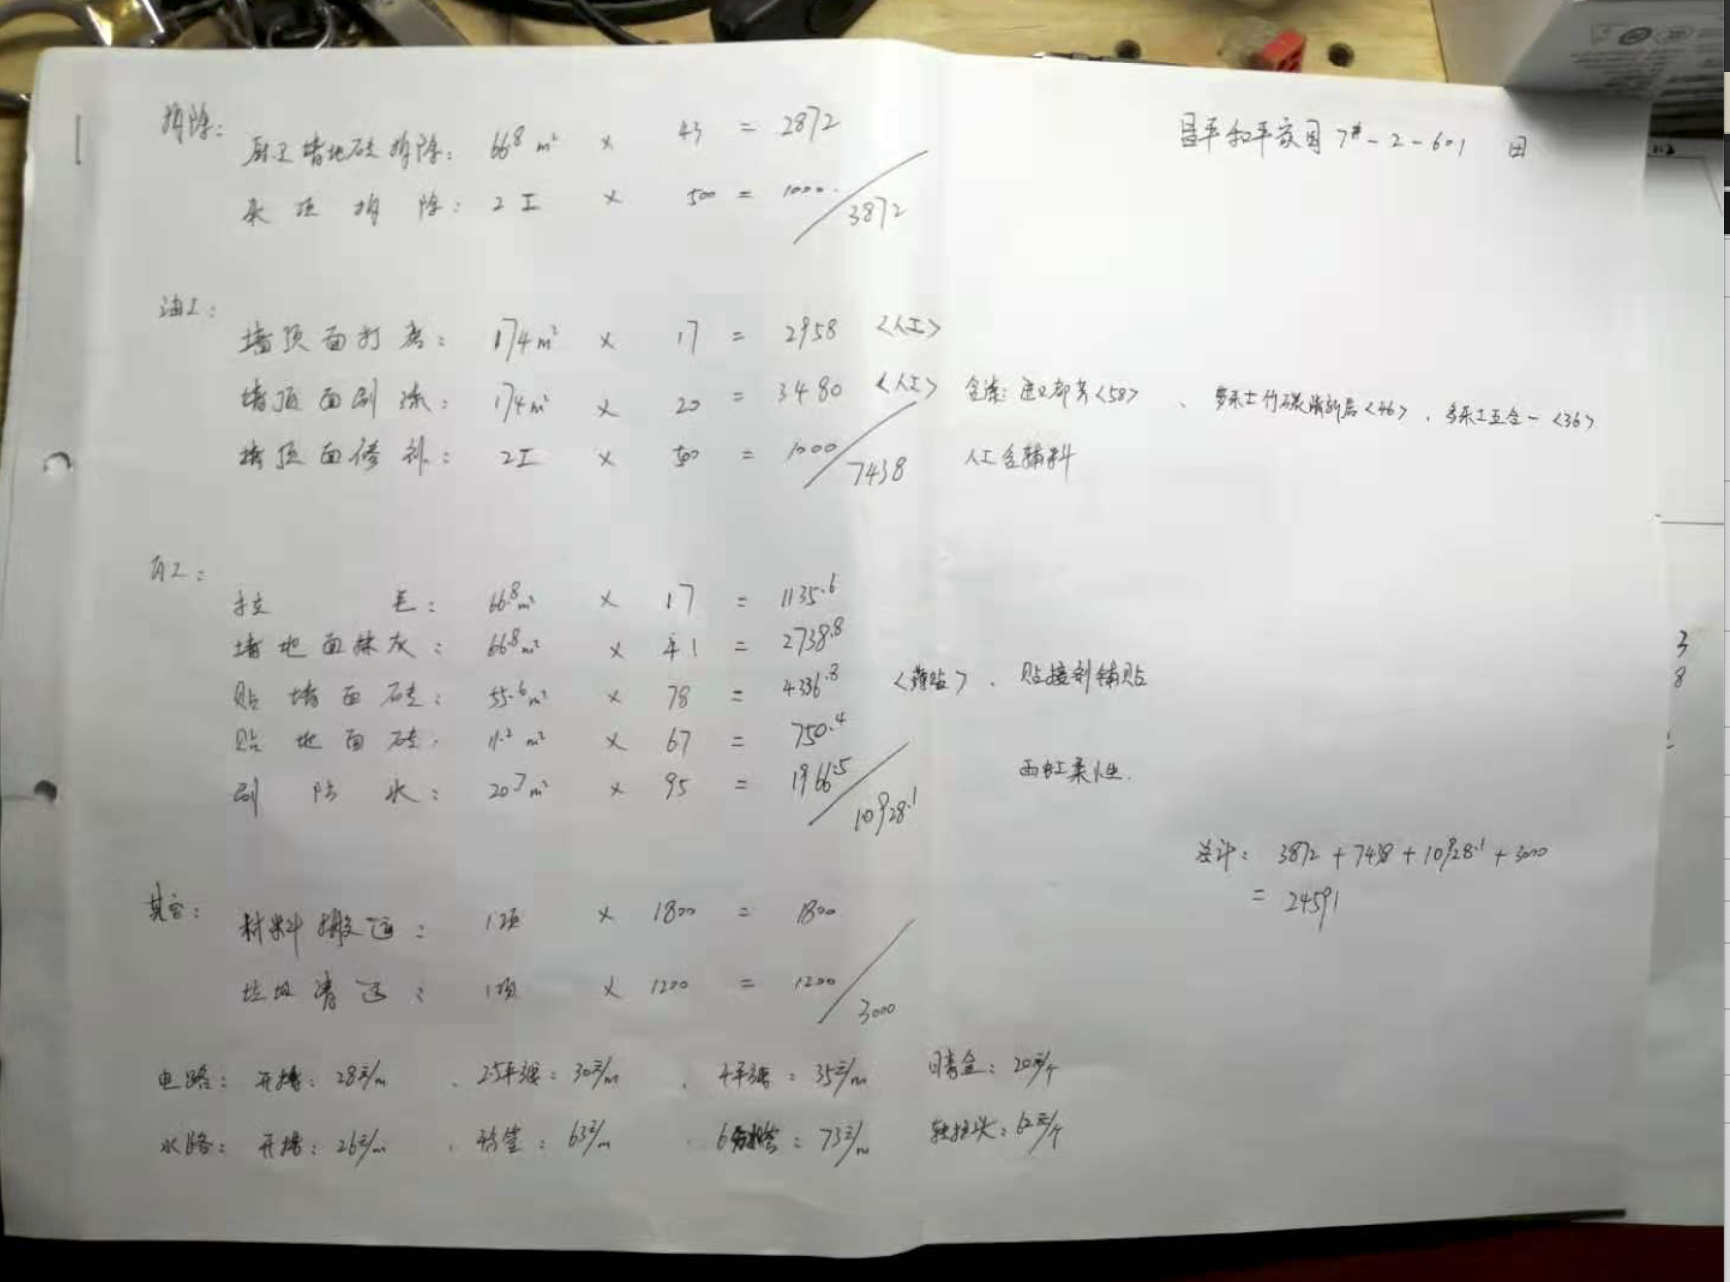 拆除：
昌平和平家园 7#-2-601 田
厨卫墙地砖拆除： 66.8m² × 43 = 2872
吊顶拆除： 2工 × 500 = 1000
3872
油工：
墙顶面打磨： 174m² × 17 = 2958 <人工>
墙顶面刷漆： 174m² × 20 = 3480 <人工> 含漆：进口都芳<58> 、 多乐士竹碳清新居<46> 、 多乐士五合一<36>
墙顶面修补： 2工 × 500 = 1000 人工含辅料
7438
瓦工：
拉毛： 66.8m² × 17 = 1135.6
墙地面抹灰： 66.8m² × 41 = 2738.8
贴墙面砖： 55.6m² × 78 = 4336.8 <薄贴> 、 贴接剂铺贴
贴地面砖： 11.2m² × 67 = 750.4
刷防水： 20.7m² × 95 = 1966.5 雨虹柔性.
10928.1
总计： 3872+7438+10928.1+3000
= 24591
其它：
材料搬运： 1项 × 1800 = 1800
垃圾清运： 1项 × 1200 = 1200
3000
电路： 开槽： 28元/m 、 2.5平线： 30元/m 、 4平线： 35元/m 暗盒： 20元/个
水路： 开槽： 26元/m 、 63元/m 、 73元/m 62元/个